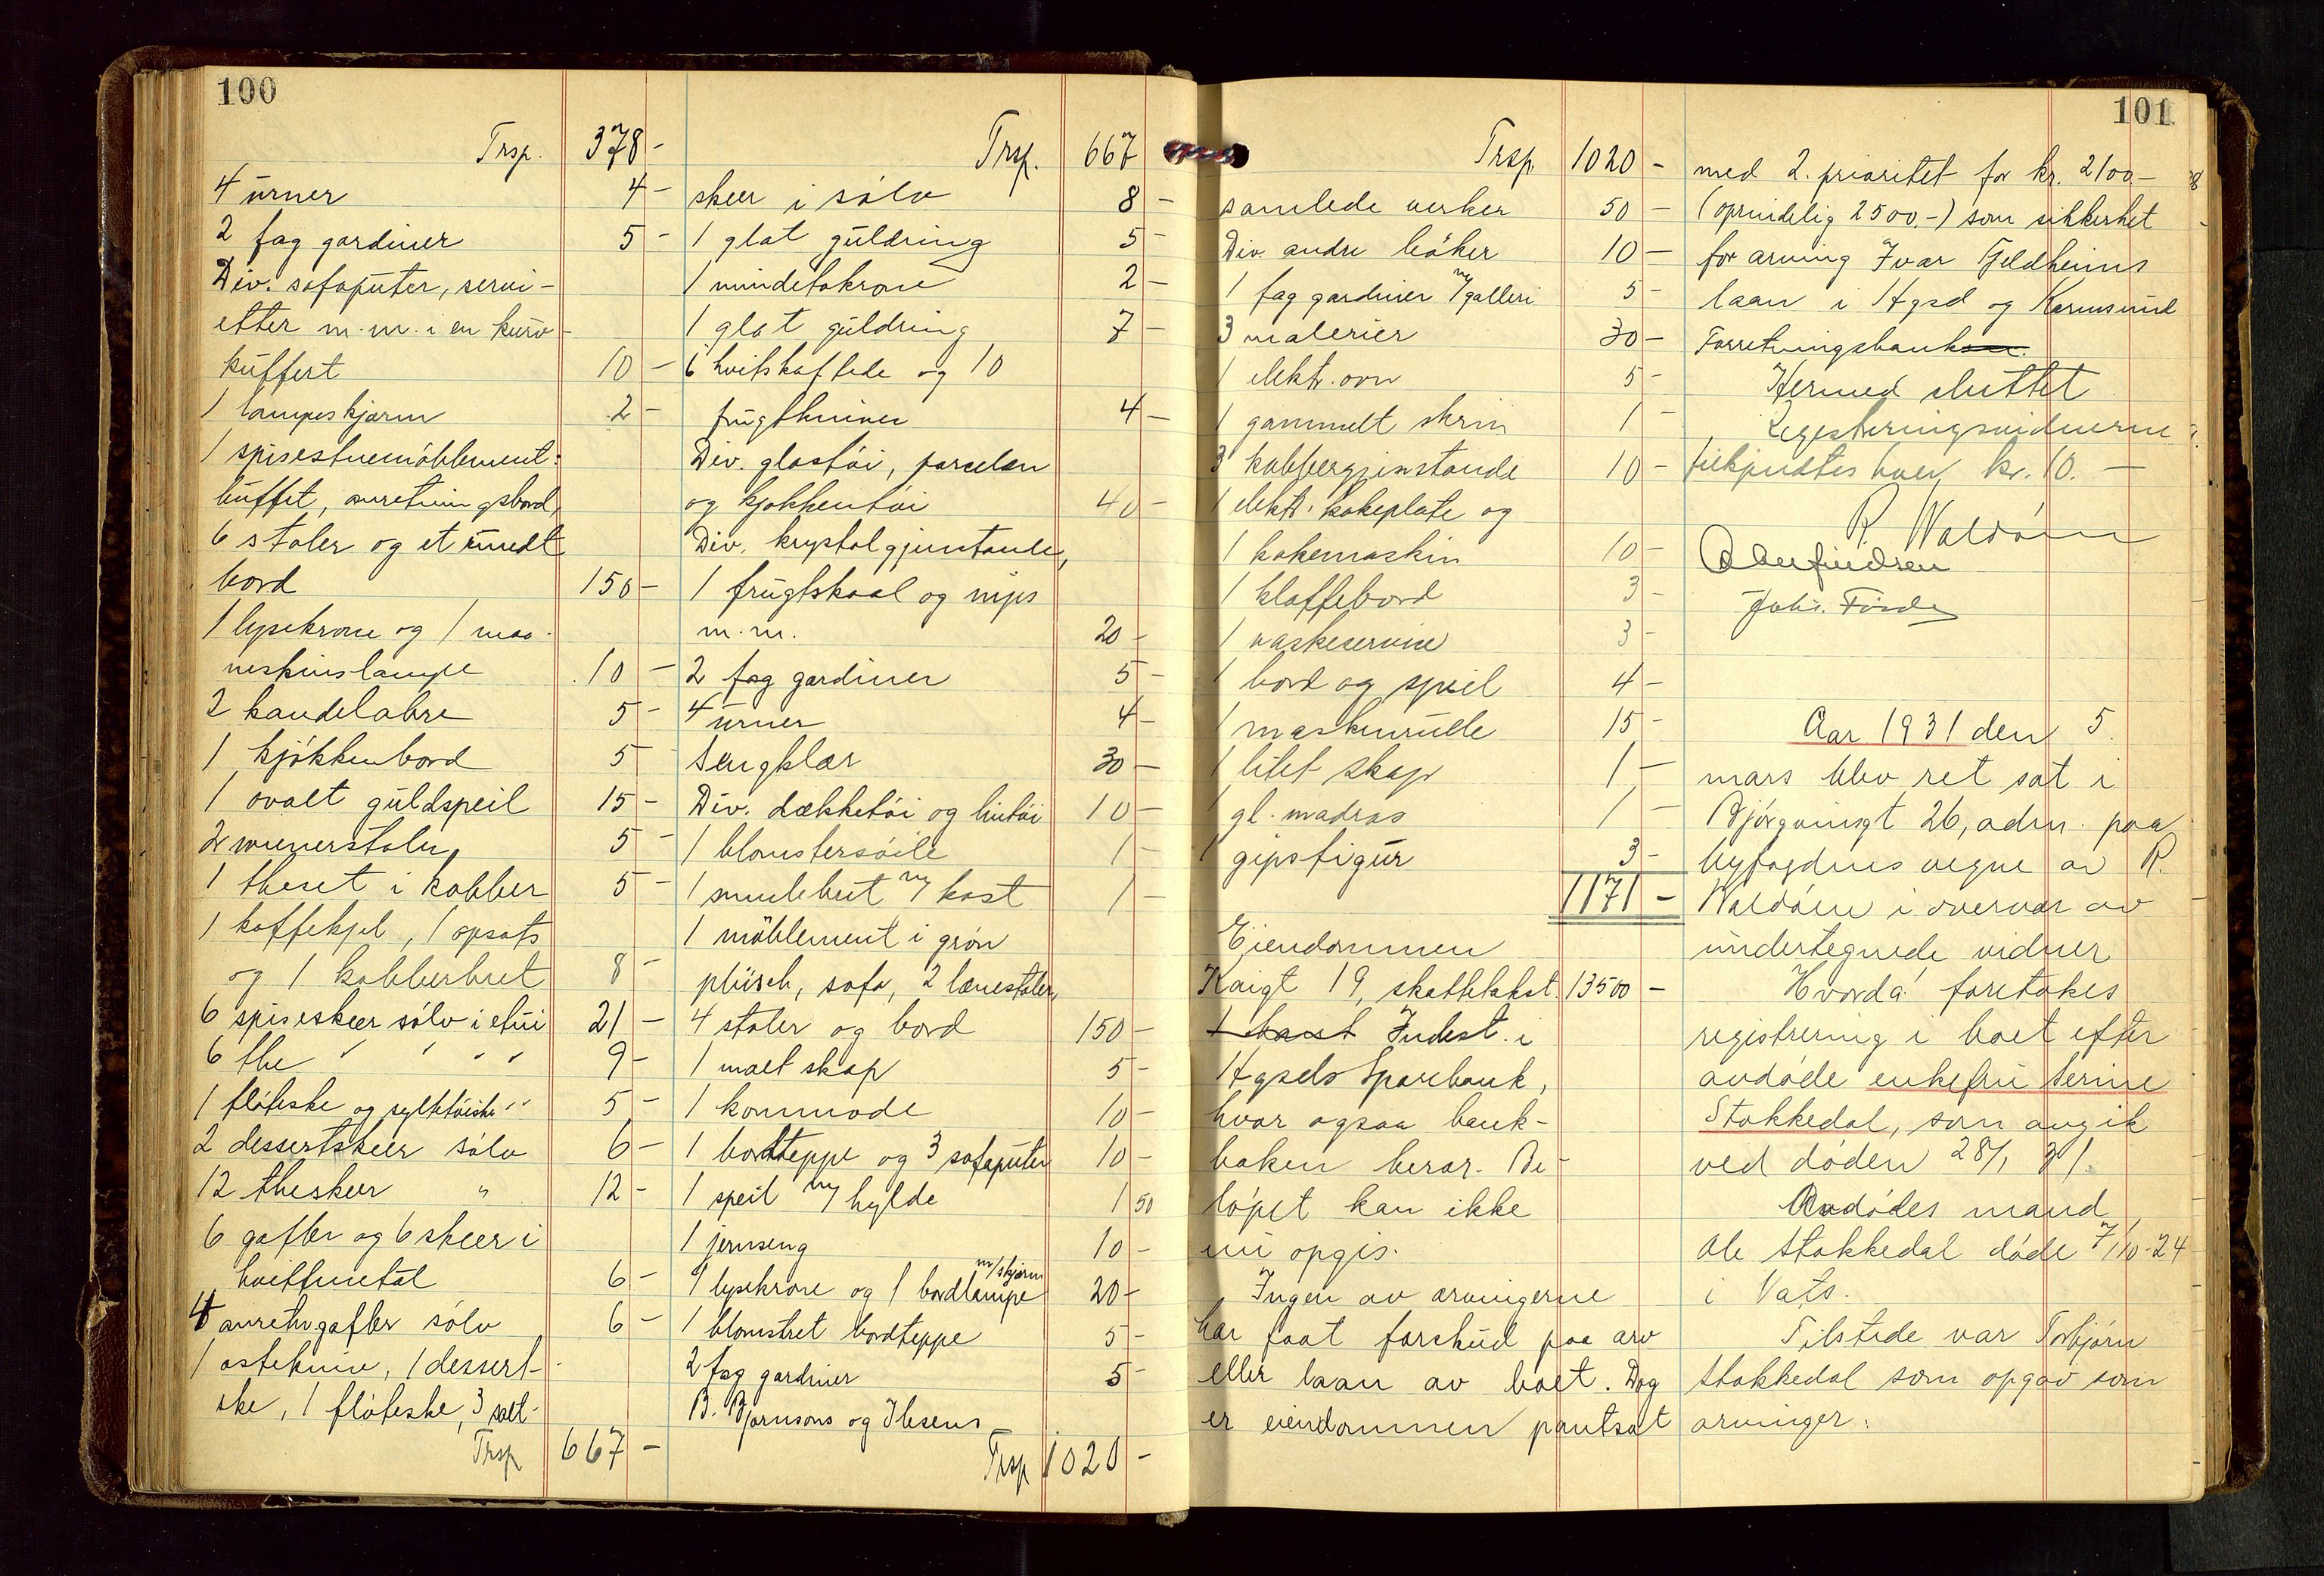 100
Trsp. 378 -
4 urner 4 -
2 fag gardiner 5 -
Div. sofaputer, servi-
etter m.m. i en kurv-
kuffert 10 -
1 lampeskjærm 2 -
1 spisestuemöblement:
buffet, anretningsbord,
6 stoler og et rundt
bord 150 -
1 lysekrone og 1 maa-
neskinslampe 10 -
2 kandelabre 5 -
1 kjökkenbord 5
1 ovalt guldspeil 15 -
2 wienerstoler 5 -
1 theset i kobber 5 -
1 kaffekjel, 1 opsats
og 1 kobberbret 8 -
6 spiseskeer sölv i etui 21 -
6 the " " " " 9 -
1 flöteske og syltetöiske " " 5 -
2 dessertskeer sölv 6 -
12 theskeer " 12 -
6 gafler og 6 skeer i
hvittmetal 6 -
4 anretn.gafler sölv 6 -
1 ostekniv, 1 dessert-
ske, 1 flöteske, 3 salt-
Trsp 667 -
Trsp. 667
skeer i sölv 8 -
1 glat guldring 5 -
1 mindetokrone 2 -
1 glat guldring 7 -
6 hvitskaftede og 10
frugtkniver 4 -
Div. glastöi, porcelæn
og kjøkkentöi 40 -
Div. krystalgjenstande,
1 frugtskaal og nips
m.m. 20 -
2 fag gardiner 5 -
4 urner 4 -
Sengklær 30 -
Div. dækketöi og lintöi 10 -
1 blomstersöile 1 -
1 smulebret m/ kost 1 -
1 möblement i grön
plüsch, sofa, 2 lænestoler,
4 stoler og bord 150 -
1 malt skap 5 -
1 kommode 10 -
1 bordteppe og 3 sofaputer 10 -
1 speil m/ hylde 1 50
1 jernseng 10 -
m/skjærm
1 lysekrone og 1 bordlampe 20 -
1 blomstret bordteppe 5 -
2 fag gardiner 5 -
B. Bjørnsons og Ibsens
Trsp 1020 -
101
Trsp. 1020 -
samlede verker 50 -
Div. andre böker 10 -
1 fag gardiner m/ galleri 5 -
3 malerier 30 -
1 elektr. ovn 5 -
1 gammelt skrin 1 -
3 kobbergjenstande 10 -
1 elektr. kokeplate og
1 kokemaskin 10 -
1 klaffebord 3 -
1 vaskeservise 3 -
1 bord og speil 4 -
1 maskinrulle 15 -
1 litet skap 1, -
1 gl. madras 1 -
1 gipsfigur 3 -
1171 -
Eiendommen
Kaigt 19, skattetakst. 13500 -
1 Indest. i
Hgsds Sparebank,
hvor ogsaa bank-
boken beror. Be-
löpet kan ikke
nu opgis.
Ingen av arvingerne
har faat forskud paa arv
eller laan av boet. Dog
er eiendommen pantsat
med 2. prioritet for kr. 2100 -
(oprindelig 2500.-) som sikkerhet
for arving Ivar Fjeldheims
laan i Hgsd og Karmsund
Forretningsbank
Hermed sluttet
Registreringsvidnerne
tilkjendtes hver kr. 10. -
R. Waldöm
Joh. Førde
Aar 1931 den 5.
mars blev ret sat i
Björgvinsgt 26, adm. paa
byfogdens vegne av R.
Waldöm i overvær av
undertegnede vidner
Hvorda foretokes
registrering i boet efter
avdöde enkefru Serine
Stokkedal, som avgik
ved döden 28/1 31.
Avdödes mand
Ole Stokkedal döde 7/10-24
i Vats.
Tilstede var Torbjörn
Stokkedal som opgav som
arvinger: